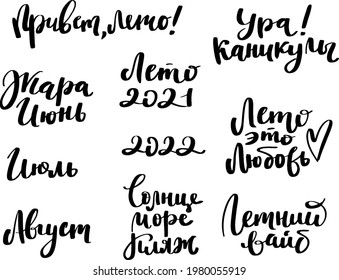 Привет, лето!
Ура!
Каникулы
Жара
Июнь
Лето
2021
Июль
2022
Лето
это
Любовь
Август
Солнце
море
пляж
Летний
вайб
shutterstock.com · 1980055919